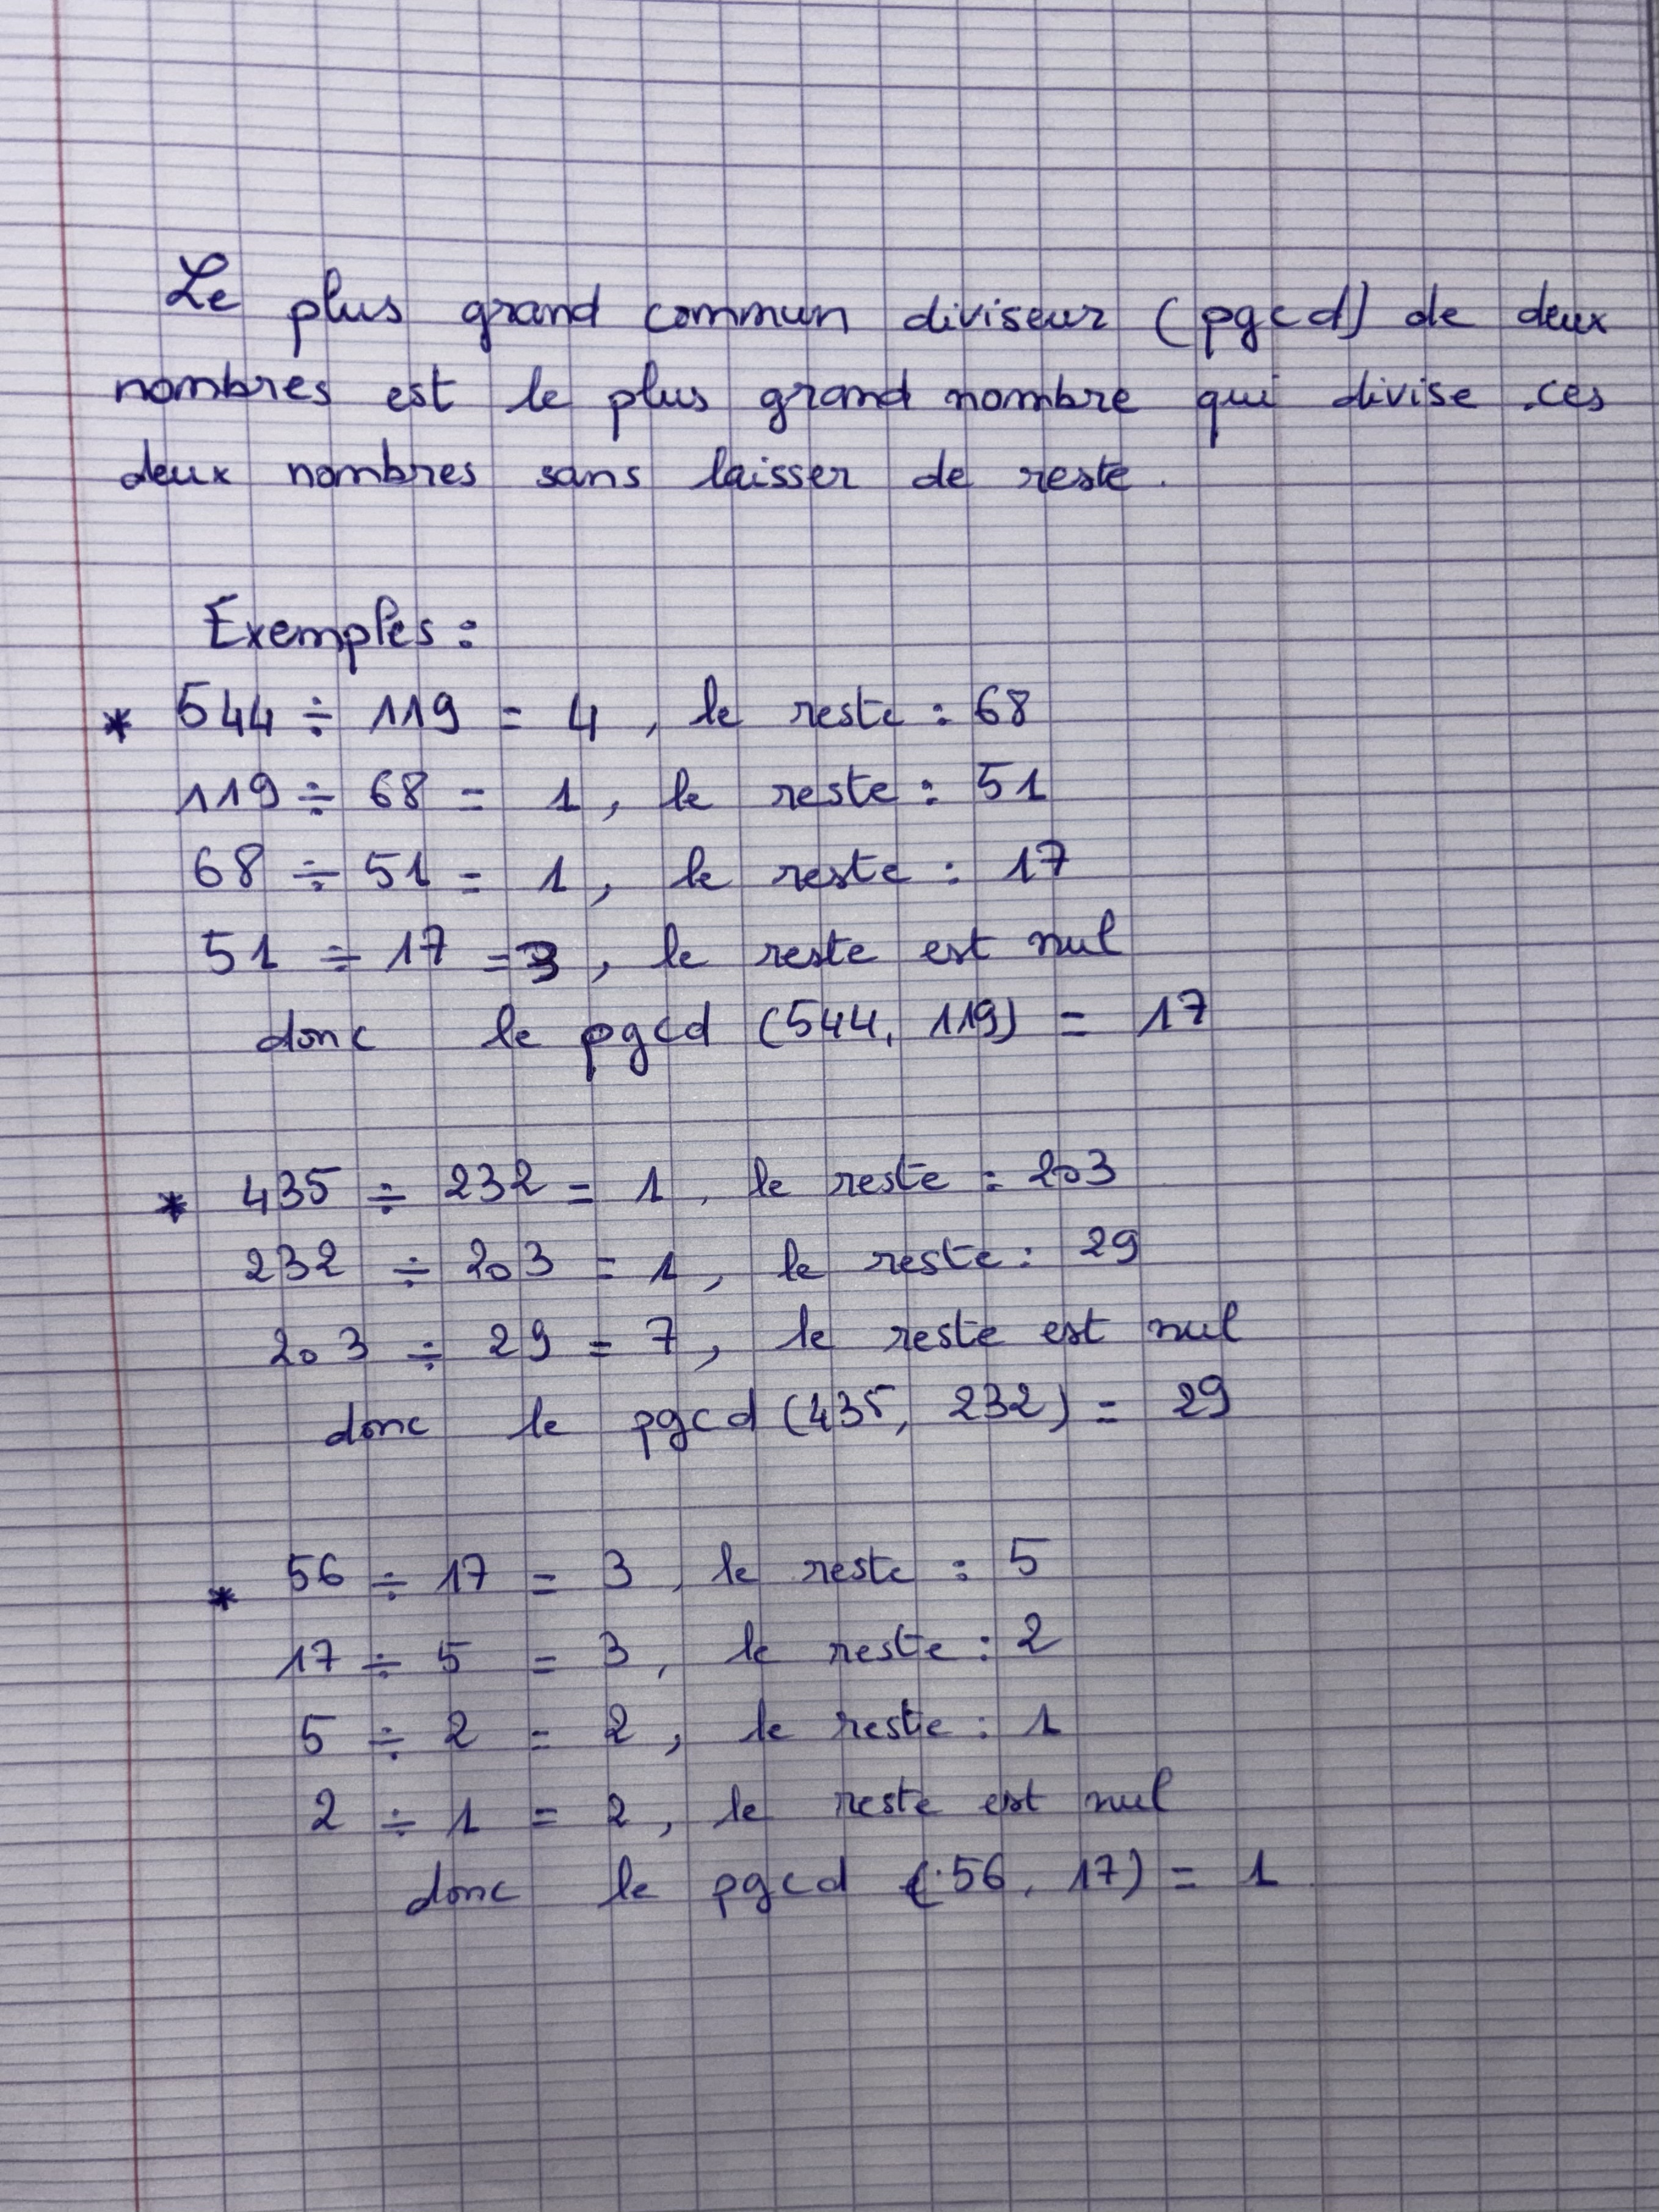 Le plus grand commun diviseur (pgcd) de deux
nombres est le plus grand nombre qui divise ces
deux nombres sans laisser de reste.
Exemples :
* 544 ÷ 119 = 4, le reste : 68
119 ÷ 68 = 1, le reste : 51
68 ÷ 51 = 1, le reste : 17
51 ÷ 17 = 3, le reste est nul
donc le pgcd (544, 119) = 17
* 435 ÷ 232 = 1, le reste : 203
232 ÷ 203 = 1, le reste : 29
203 ÷ 29 = 7, le reste est nul
donc le pgcd (435, 232) = 29
* 56 ÷ 17 = 3, le reste : 5
17 ÷ 5 = 3, le reste : 2
5 ÷ 2 = 2, le reste : 1
2 ÷ 1 = 2, le reste est nul
donc le pgcd (56, 17) = 1